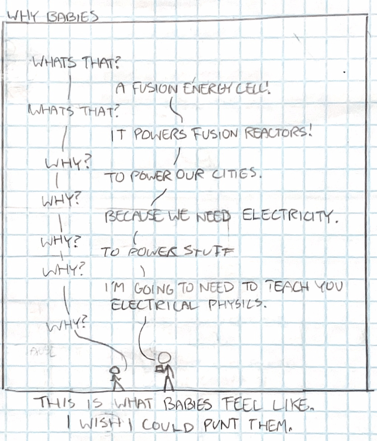 WHY BABIES
WHATS THAT?
A FUSION ENERGY CELL!
WHATS THAT?
IT POWERS FUSION REACTORS!
WHY?
TO POWER OUR CITIES.
WHY?
BECAUSE WE NEED ELECTRICITY.
WHY?
TO POWER STUFF
WHY?
I'M GOING TO NEED TO TEACH YOU
ELECTRICAL PHYSICS.
WHY?
THIS IS WHAT BABIES FEEL LIKE.
I WISH I COULD PUNT THEM.